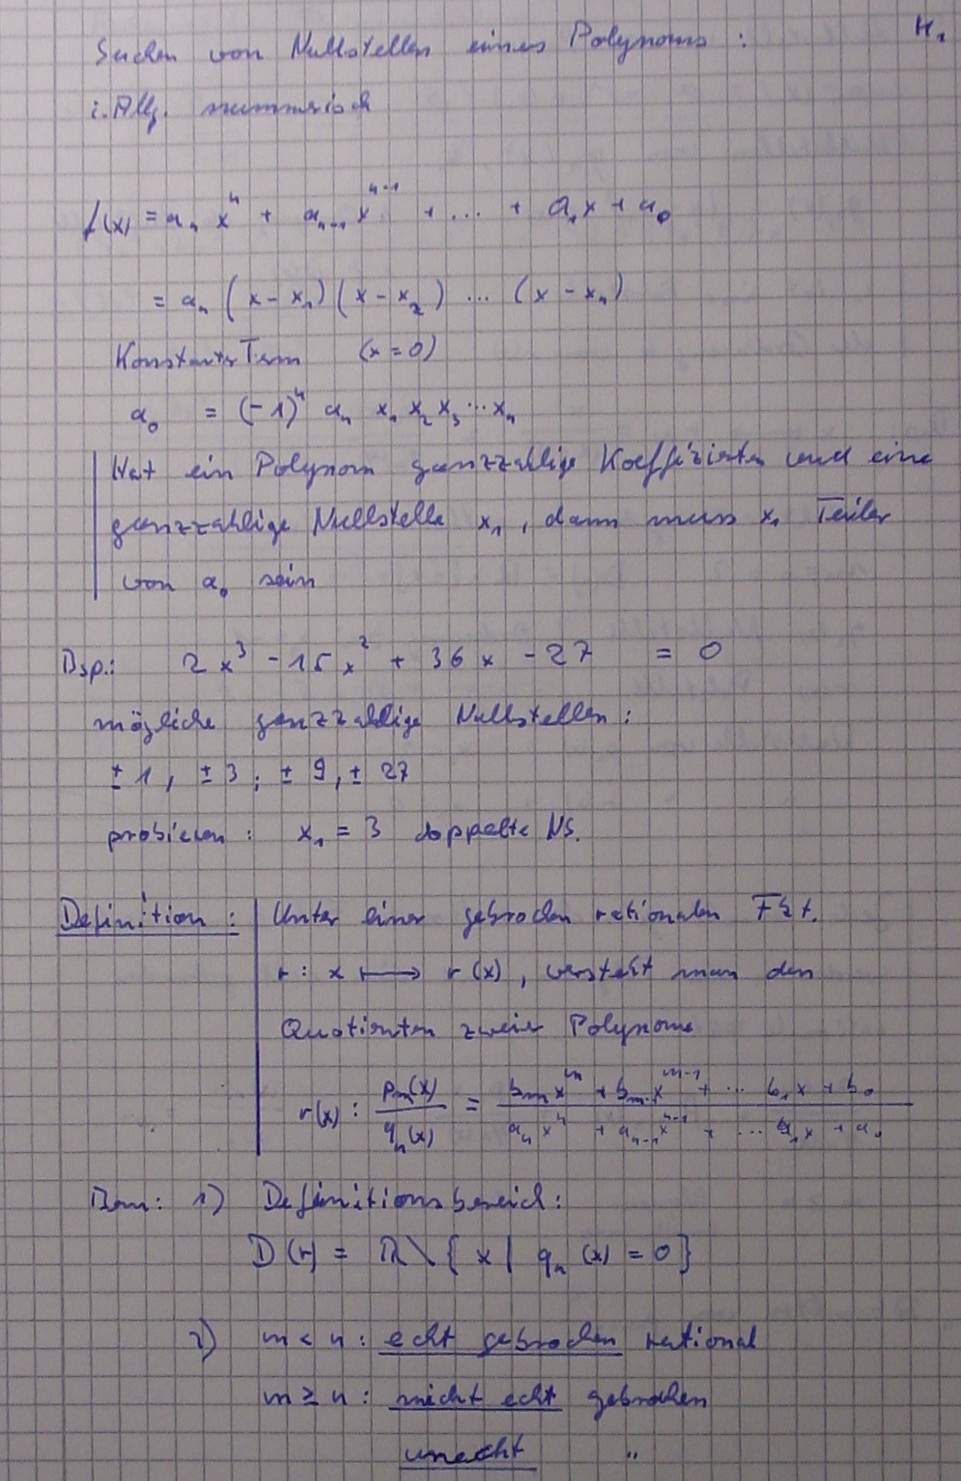 H1
Suchen von Nullstellen eines Polynoms :
i. Allg. nummerisch
f(x) = aₙ xⁿ + aₙ₋₁ xⁿ⁻¹ + ... + a₁x + a₀
= aₙ (x - x₁) (x - x₂) ... (x - xₙ)
Konstanter Term (x = 0)
a₀ = (-1)ⁿ aₙ x₁ x₂ x₃ ... xₙ
Hat ein Polynom ganzzahlige Koeffizienten und eine
ganzzahlige Nullstelle x₁, dann muss x₁ Teiler
von a₀ sein
Bsp.: 2x³ - 15x² + 36x - 27 = 0
mögliche ganzzahlige Nullstellen :
± 1, ± 3, ± 9, ± 27
probieren : x₁ = 3 doppelte NS.
Definition : Unter einer gebrochen rationalen Fkt.
r : x ⟼ r(x), versteht man den
Quotienten zweier Polynome
r(x) : pₘ(x)/qₙ(x) = (bₘ xᵐ + bₘ₋₁ xᵐ⁻¹ + ... b₁x + b₀)/(aₙ xⁿ + aₙ₋₁ xⁿ⁻¹ + ... a₁x + a₀)
Bem: 1) Definitionsbereich :
D(r) = ℝ \ { x | qₙ(x) = 0 }
2) m < n : echt gebrochen rational
m ≥ n : nicht echt gebrochen
unecht "